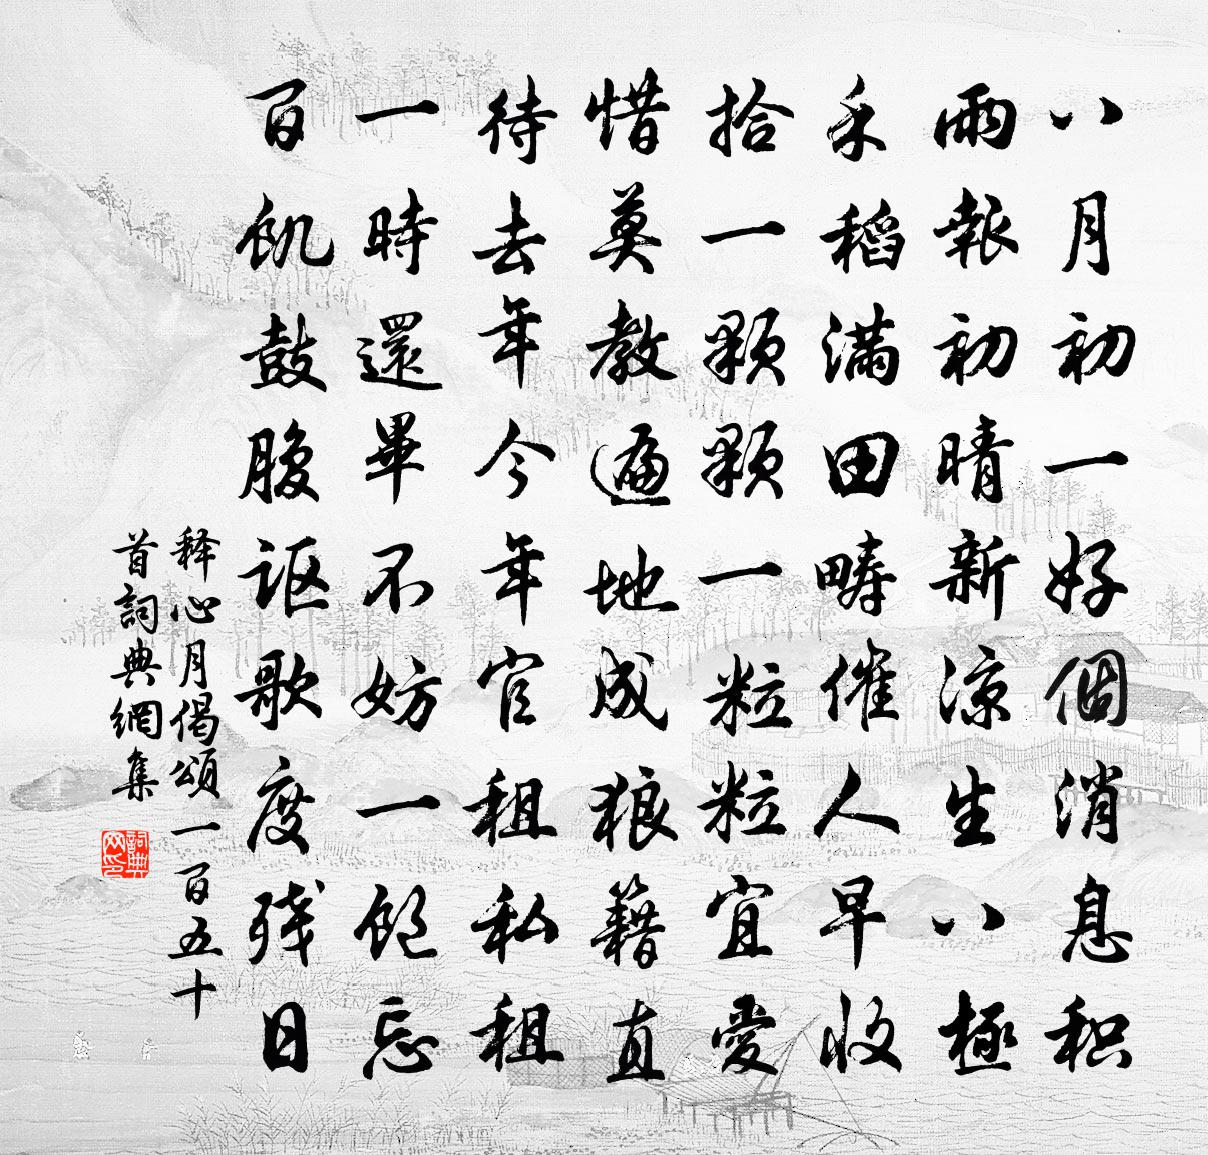 八月初一好個消息积
雨報初晴新涼生八極
禾稻滿田疇催人早收
拾一顆顆一粒粒宜愛
惜莫教遍地成狼籍直
待去年今年官租私租
一時還畢不妨一飽忘
百飢鼓腹讴歌度残日
释心月偈頌一百五十
首詞典網集
詞典
网印